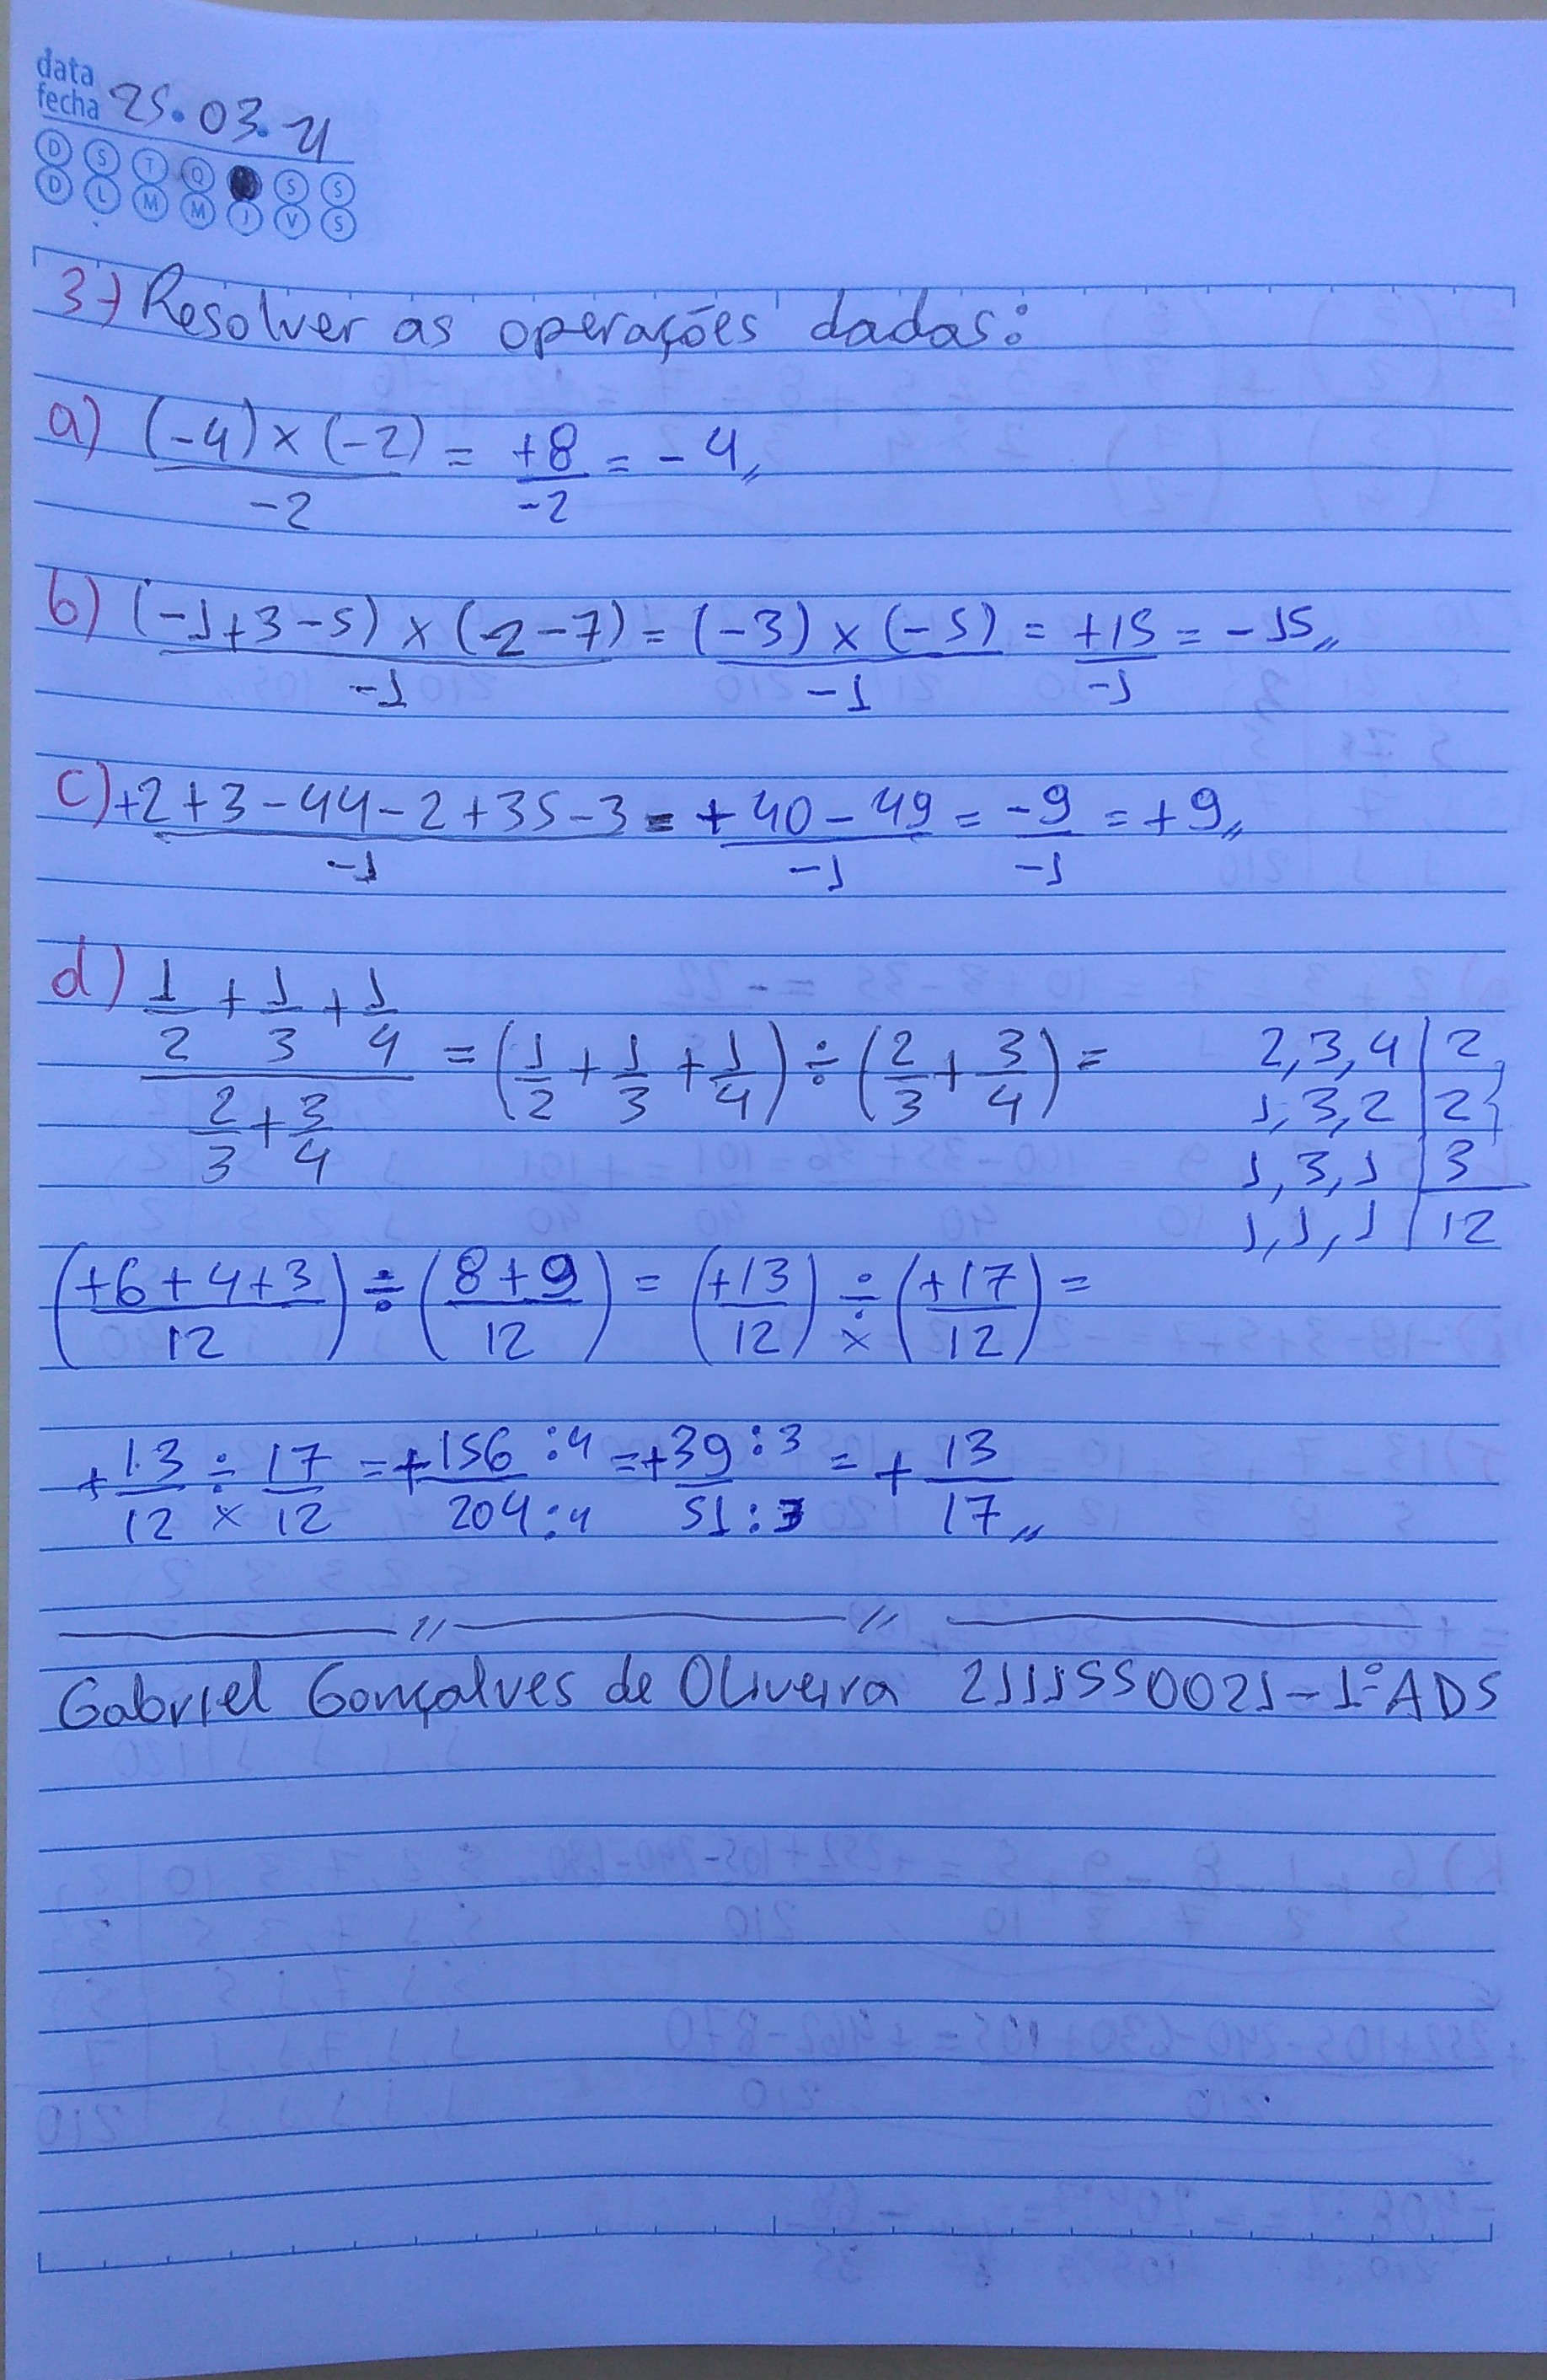 data
fecha 25.03.21
D S T Q S S
D L M M J V S
3) Resolver as operações dadas:
a) (-4) x (-2) = +8 = -4,,
-2 -2
b) (-1+3-5) x (2-7) = (-3) x (-5) = +15 = -15,,
-1 -1 -1
c) +2+3-44-2+35-3 = +40-49 = -9 = +9,,
-1 -1 -1
d) 1/2 + 1/3 + 1/4
2/3 + 3/4
= (1/2 + 1/3 + 1/4) ÷ (2/3 + 3/4) =
2,3,4 | 2
1,3,2 | 2
1,3,1 | 3
1,1,1 | 12
(+6+4+3/12) ÷ (8+9/12) = (+13/12) ÷ x (+17/12) =
+13/12 ÷ x 17/12 = +156:4/204:4 = +39:3/51:3 = +13/17,,
Gabriel Gonçalves de Oliveira 2111550021-1º ADS